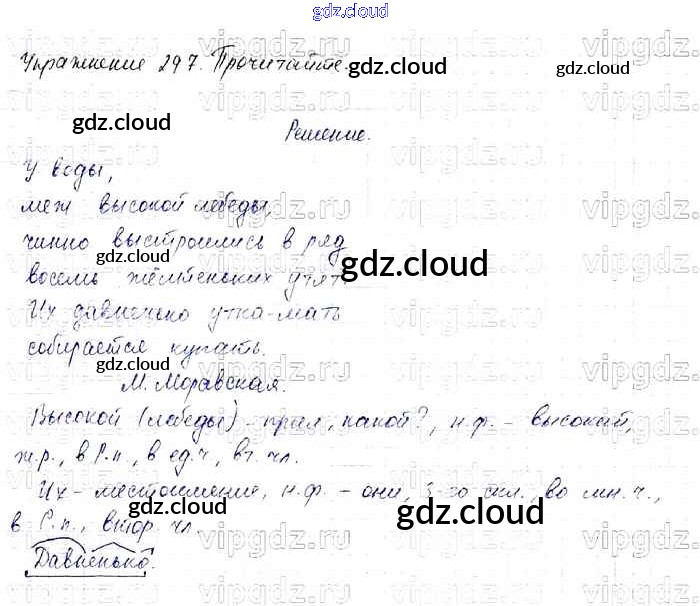 gdz.cloud
Упражнение 297. Прочитайте.
gdz.cloud
gdz.cloud
gdz.cloud
Решение.
У воды,
меж высокой лебеды,
чинно выстроились в ряд
восемь жёлтеньких утят.
gdz.cloud
Их давненько утка-мать
собирается купать.
gdz.cloud
М. Моравская.
gdz.cloud
Высокой (лебеды) - прил., какой?, н.ф. - высокий,
ж.р., в Р.п., в ед.ч., вт. чл.
gdz.cloud
Их - местоимение, н.ф. - они, 3-го скл., во мн.ч.,
в Р.п., втор. чл.
gdz.cloud
Давненько.
vipgdz.ru